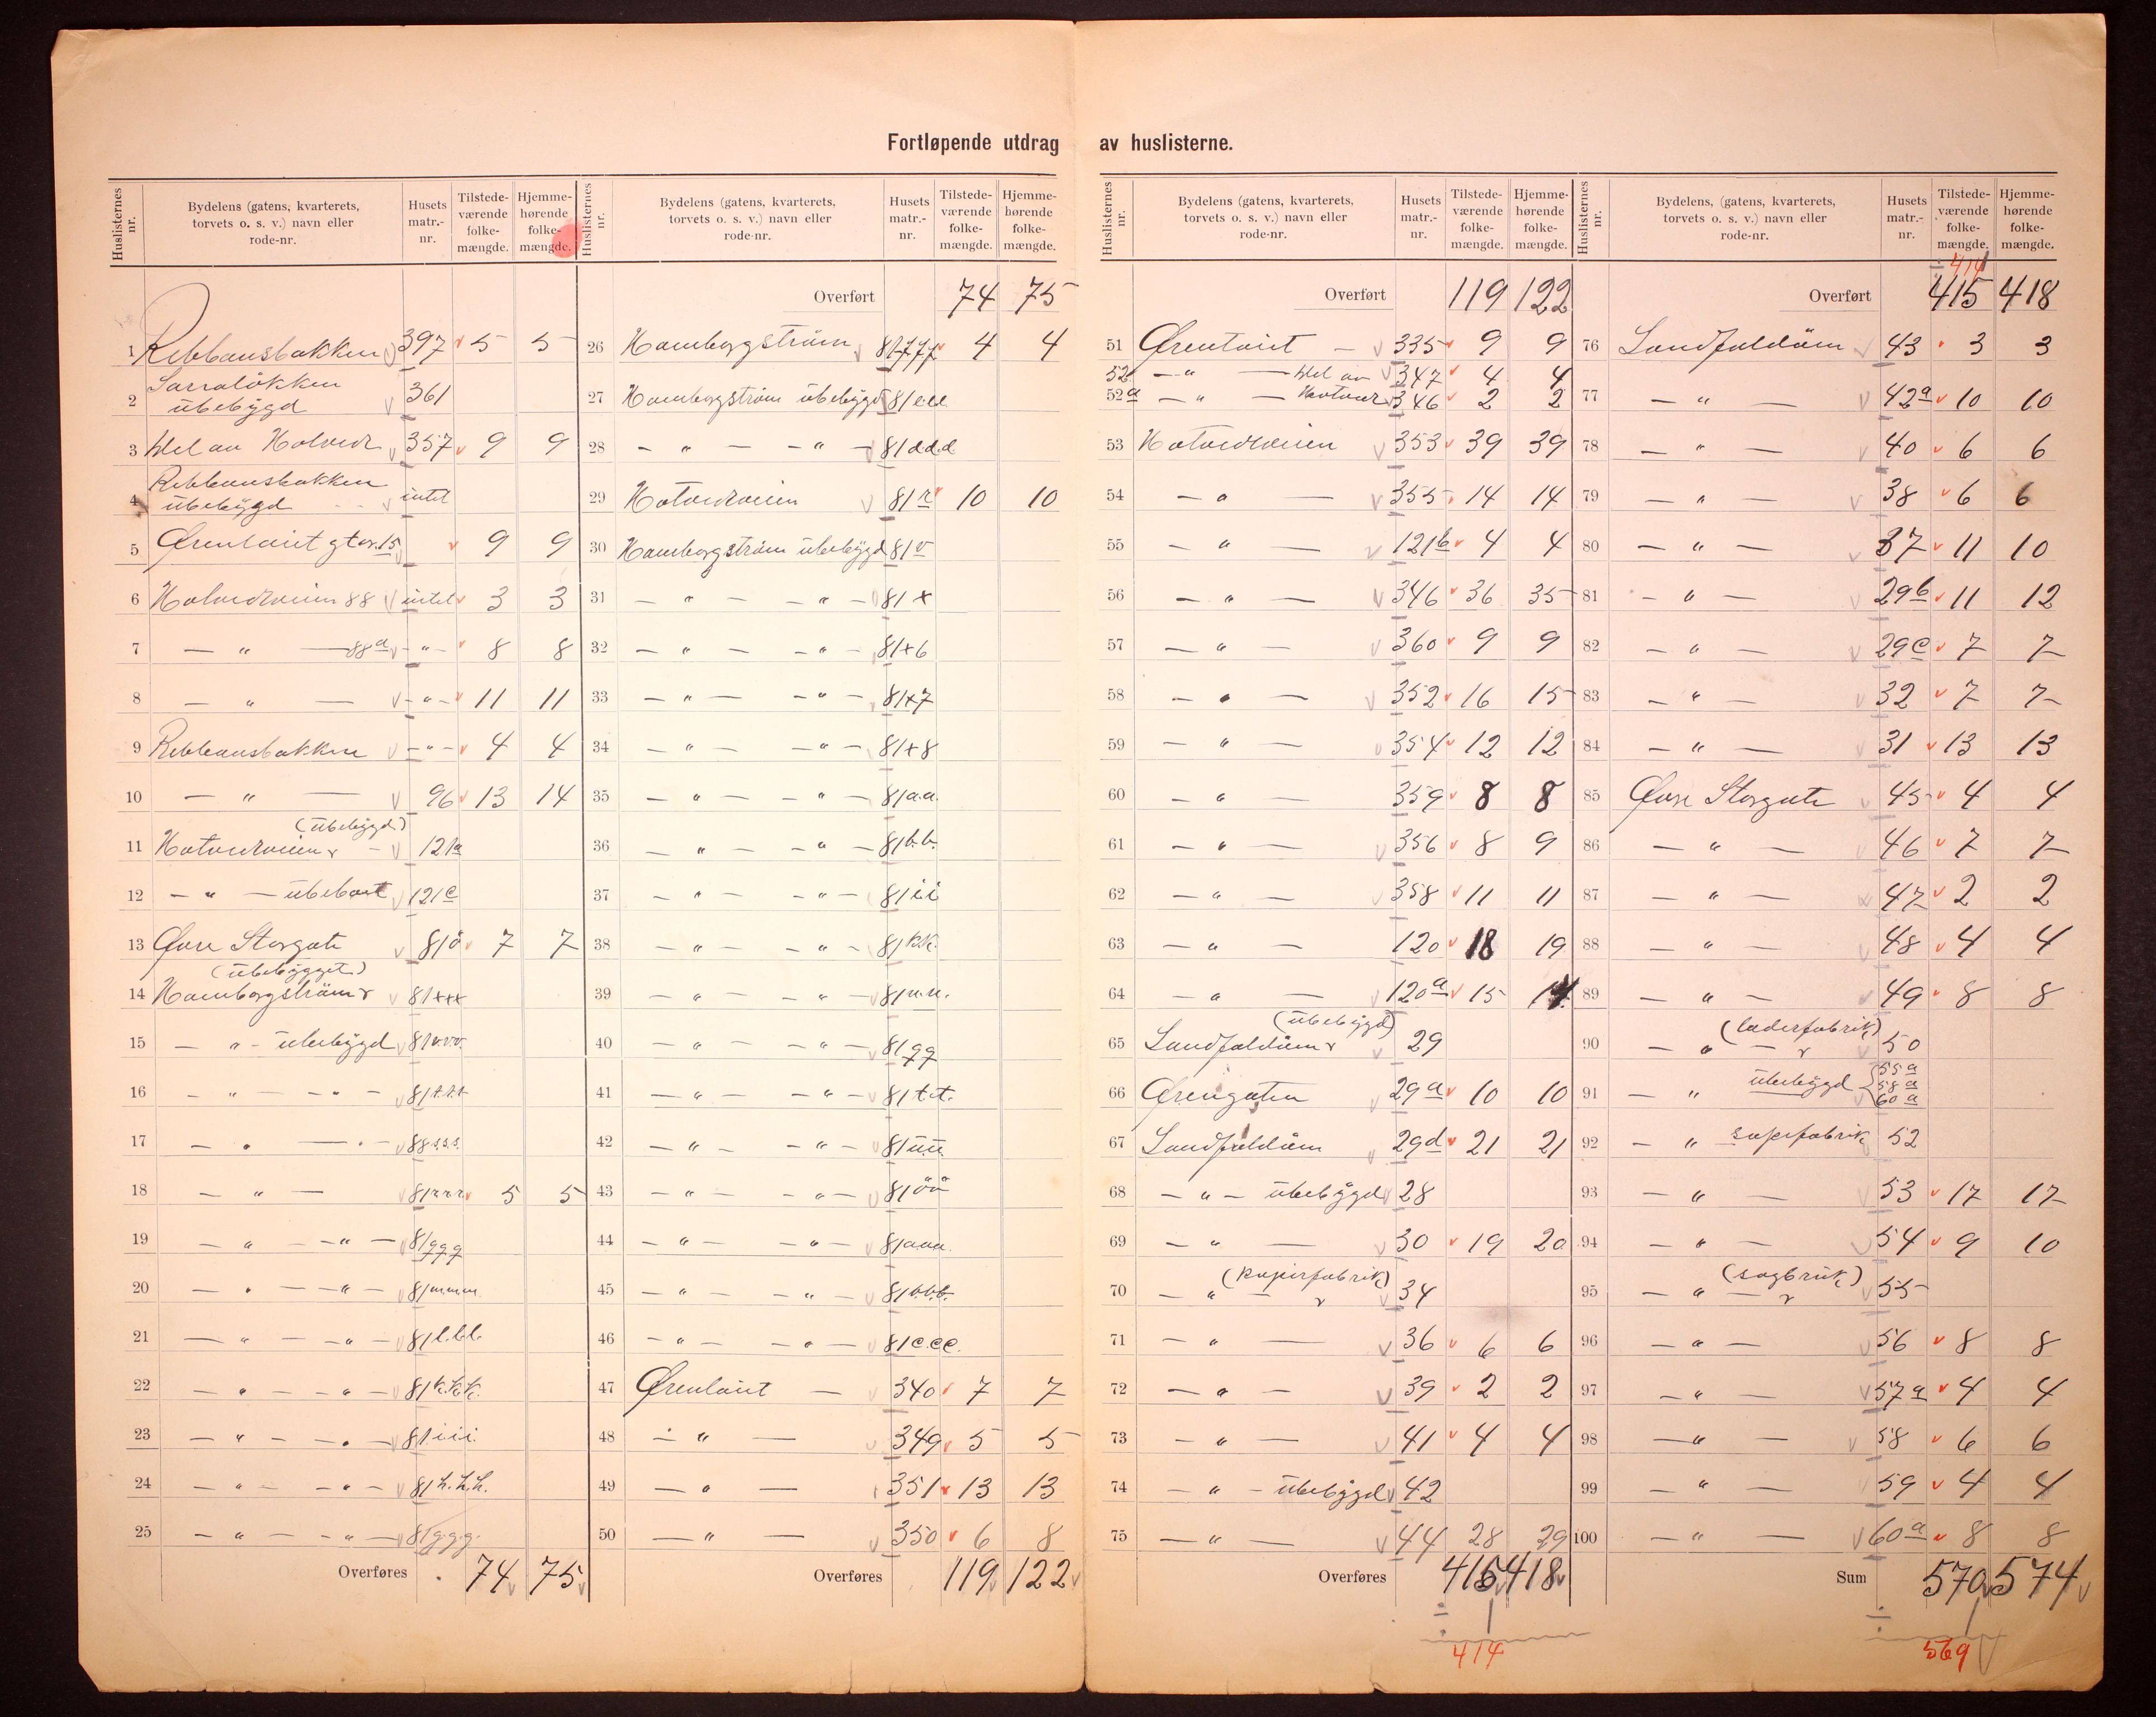 Fortløpende utdrag av huslisterne.
Huslisternes nr. | Bydelens (gatens, kvarterets, torvets o. s. v.) navn eller rode-nr. | Husets matr.-nr. | Tilstedeværende folkemængde. | Hjemmehørende folkemængde.
1 Rebbansbakken 397 5 5
2 ubebygd 361
3 Del av Hotvedt 357 9 9
4 Rebbansbakken ubebygd intet
5 Ørentoiet gt or. 15 9 9
6 Hotvedtveien 88 intet 3 3
7 — " — 88a - " - 8 8
8 — " — - " - 11 11
9 Rebbansbakken - " - 4 4
10 — " — 96 13 14
11 Hotvedtveien (ubebygd) 121a
12 — " — 121c
13 Øvre Storgate 81å 7 7
14 Hamborgstrøm (ubebygget) 81xxx
15 — " - ubebygd 81v.v.v.
16 — " — - " - 81t.t.t.
17 — " — - " - 88s.s.s.
18 — " — 81r.r.r. 5 5
19 — " — - " - 81qqq
20 — " — - " - 81mmm.
21 — " — - " - 81l.l.l.
22 — " — - " - 81k.k.k.
23 — " — - " - 81.i.i.i.
24 — " — - " - 81h.h.h.
25 — " — - " - 81g.g.g.
Overføres 74 75
Huslisternes nr. | Bydelens (gatens, kvarterets, torvets o. s. v.) navn eller rode-nr. | Husets matr.-nr. | Tilstedeværende folkemængde. | Hjemmehørende folkemængde.
Overført 74 75
26 Hamborgstrøm 4 4
27 Hamborgstrøm ubebygd 81eee
28 — " — - " — 81d.d.d.
29 Hotvedtveien 81r 10 10
30 Hamborgstrøm ubebygd 81v
31 — " — - " — 81x
32 — " — - " — 81x6
33 — " — - " — 81x7
34 — " — - " — 81x8
35 — " — - " — 81a.a.
36 — " — - " — 81b.b.
37 — " — - " — 81i.i
38 — " — - " — 81k.k.
39 — " — - " — 81n.n.
40 — " — - " — 81qq
41 — " — - " — 81t.t.
42 — " — - " — 81u.u.
43 — " — - " — 81öö
44 — " — - " — 81aaa.
45 — " — - " — 81b.b.b.
46 — " — - " — 81c.c.c.
47 Ørentoiet — 340 7 7
48 — " — 349 5 5
49 — " — 351 13 13
50 — " — 350 6 8
Overføres 119 122
Huslisternes nr. | Bydelens (gatens, kvarterets, torvets o. s. v.) navn eller rode-nr. | Husets matr.-nr. | Tilstedeværende folkemængde. | Hjemmehørende folkemængde.
Overført 119 122
51 Ørentoiet — 335 9 9
52 — " — Del av 347 4 4
52a — " — Hotvedt 346 2 2
53 Hotvedtveien 353 39 39
54 — " — 355 14 14
55 — " — 121b 4 4
56 — " — 346 36 35
57 — " — 360 9 9
58 — " — 352 16 15
59 — " — 354 12 12
60 — " — 359 8 8
61 — " — 356 8 9
62 — " — 358 11 11
63 — " — 120 18 19
64 — " — 120a 15 14
65 Landfaldøen (ubebygd) 29
66 Ørengaten 29a 10 10
67 Landfaldøen 29d 21 21
68 — " - ubebygd 28
69 — " — 30 19 20
70 — " — (papirfabrik) 34
71 — " — 36 6 6
72 — " — 39 2 2
73 — " — 41 4 4
74 — " - ubebygd 42
75 — " — 44 28 29
Overføres 415 418
÷ 1
414
Huslisternes nr. | Bydelens, (gatens, kvarterets, torvets o. s. v.) navn eller rode-nr. | Husets matr.-nr. | Tilstedeværende folkemængde. | Hjemmehørende folkemængde.
414
Overført 415 418
76 Landfaldøen 43 3 3
77 — " — 42a 10 10
78 — " — 40 6 6
79 — " — 38 6 6
80 — " — 37 11 10
81 — " — 29b 11 12
82 — " — 29c 7 7
83 — " — 32 7 7
84 — " — 31 13 13
85 Øvre Storgate 45 4 4
86 — " — 46 7 7
87 — " — 47 2 2
88 — " — 48 4 4
89 — " — 49 8 8
90 — " — (læderfabrik) 50
91 — " ubebygd 55a 58a 60a
92 — " sæpefabrik 52
93 — " — 53 17 17
94 — " — 54 9 10
95 — " — (sagbruk) 55
96 — " — 56 8 8
97 — " — 57a 4 4
98 — " — 58 6 6
99 — " — 59 4 4
100 — " — 60a 8 8
Sum 570 574
÷ 1
569